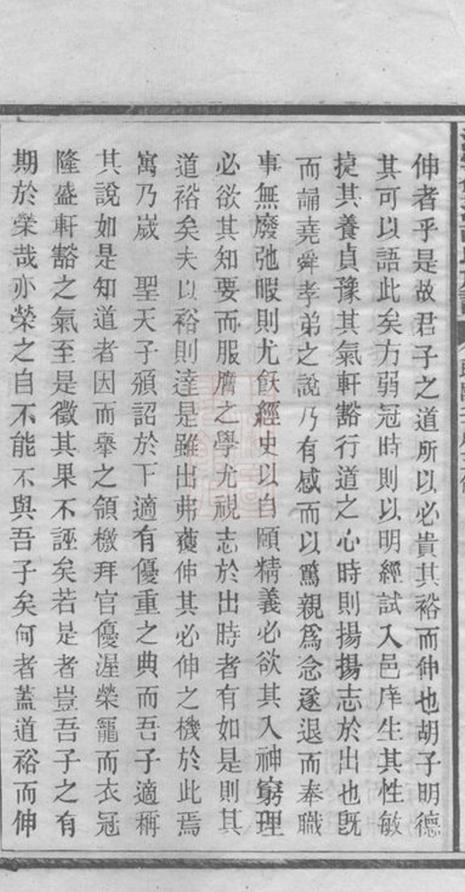 伸者乎是故君子之道所以必貴其裕而伸也胡子明德
其可以語此矣方弱冠時則以明經試入邑庠生其性敏
㨗其養貞豫其氣軒豁行道之心時則揚揚志於出也旣
而誦堯舜孝弟之說乃有感而以篤親爲念遂退而奉職
事無廢弛暇則尤飫經史以自頤精義必欲其入神窮理
必欲其知要而服膺之學尤視志於出時者有如是則其
道裕矣夫以裕則達是雖出弗獲伸其必伸之機於此焉
寓乃嵗　聖天子頒詔於下適有優重之典而吾子適稱
其說如是知道者因而舉之領檄拜官優渥榮寵而衣冠
隆盛軒豁之氣至是徵其果不誣矣若是者豈吾子之有
期於榮哉亦榮之自不能不與吾子矣何者蓋道裕而伸